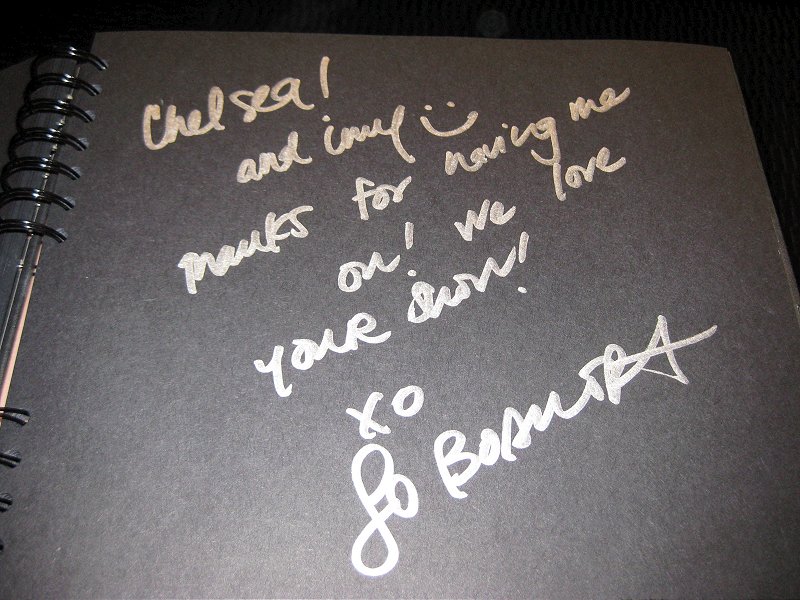 Chelsea!
and chuy :)
thanks for having me
on! We love
your show!
XO
Lo BOSWORTH